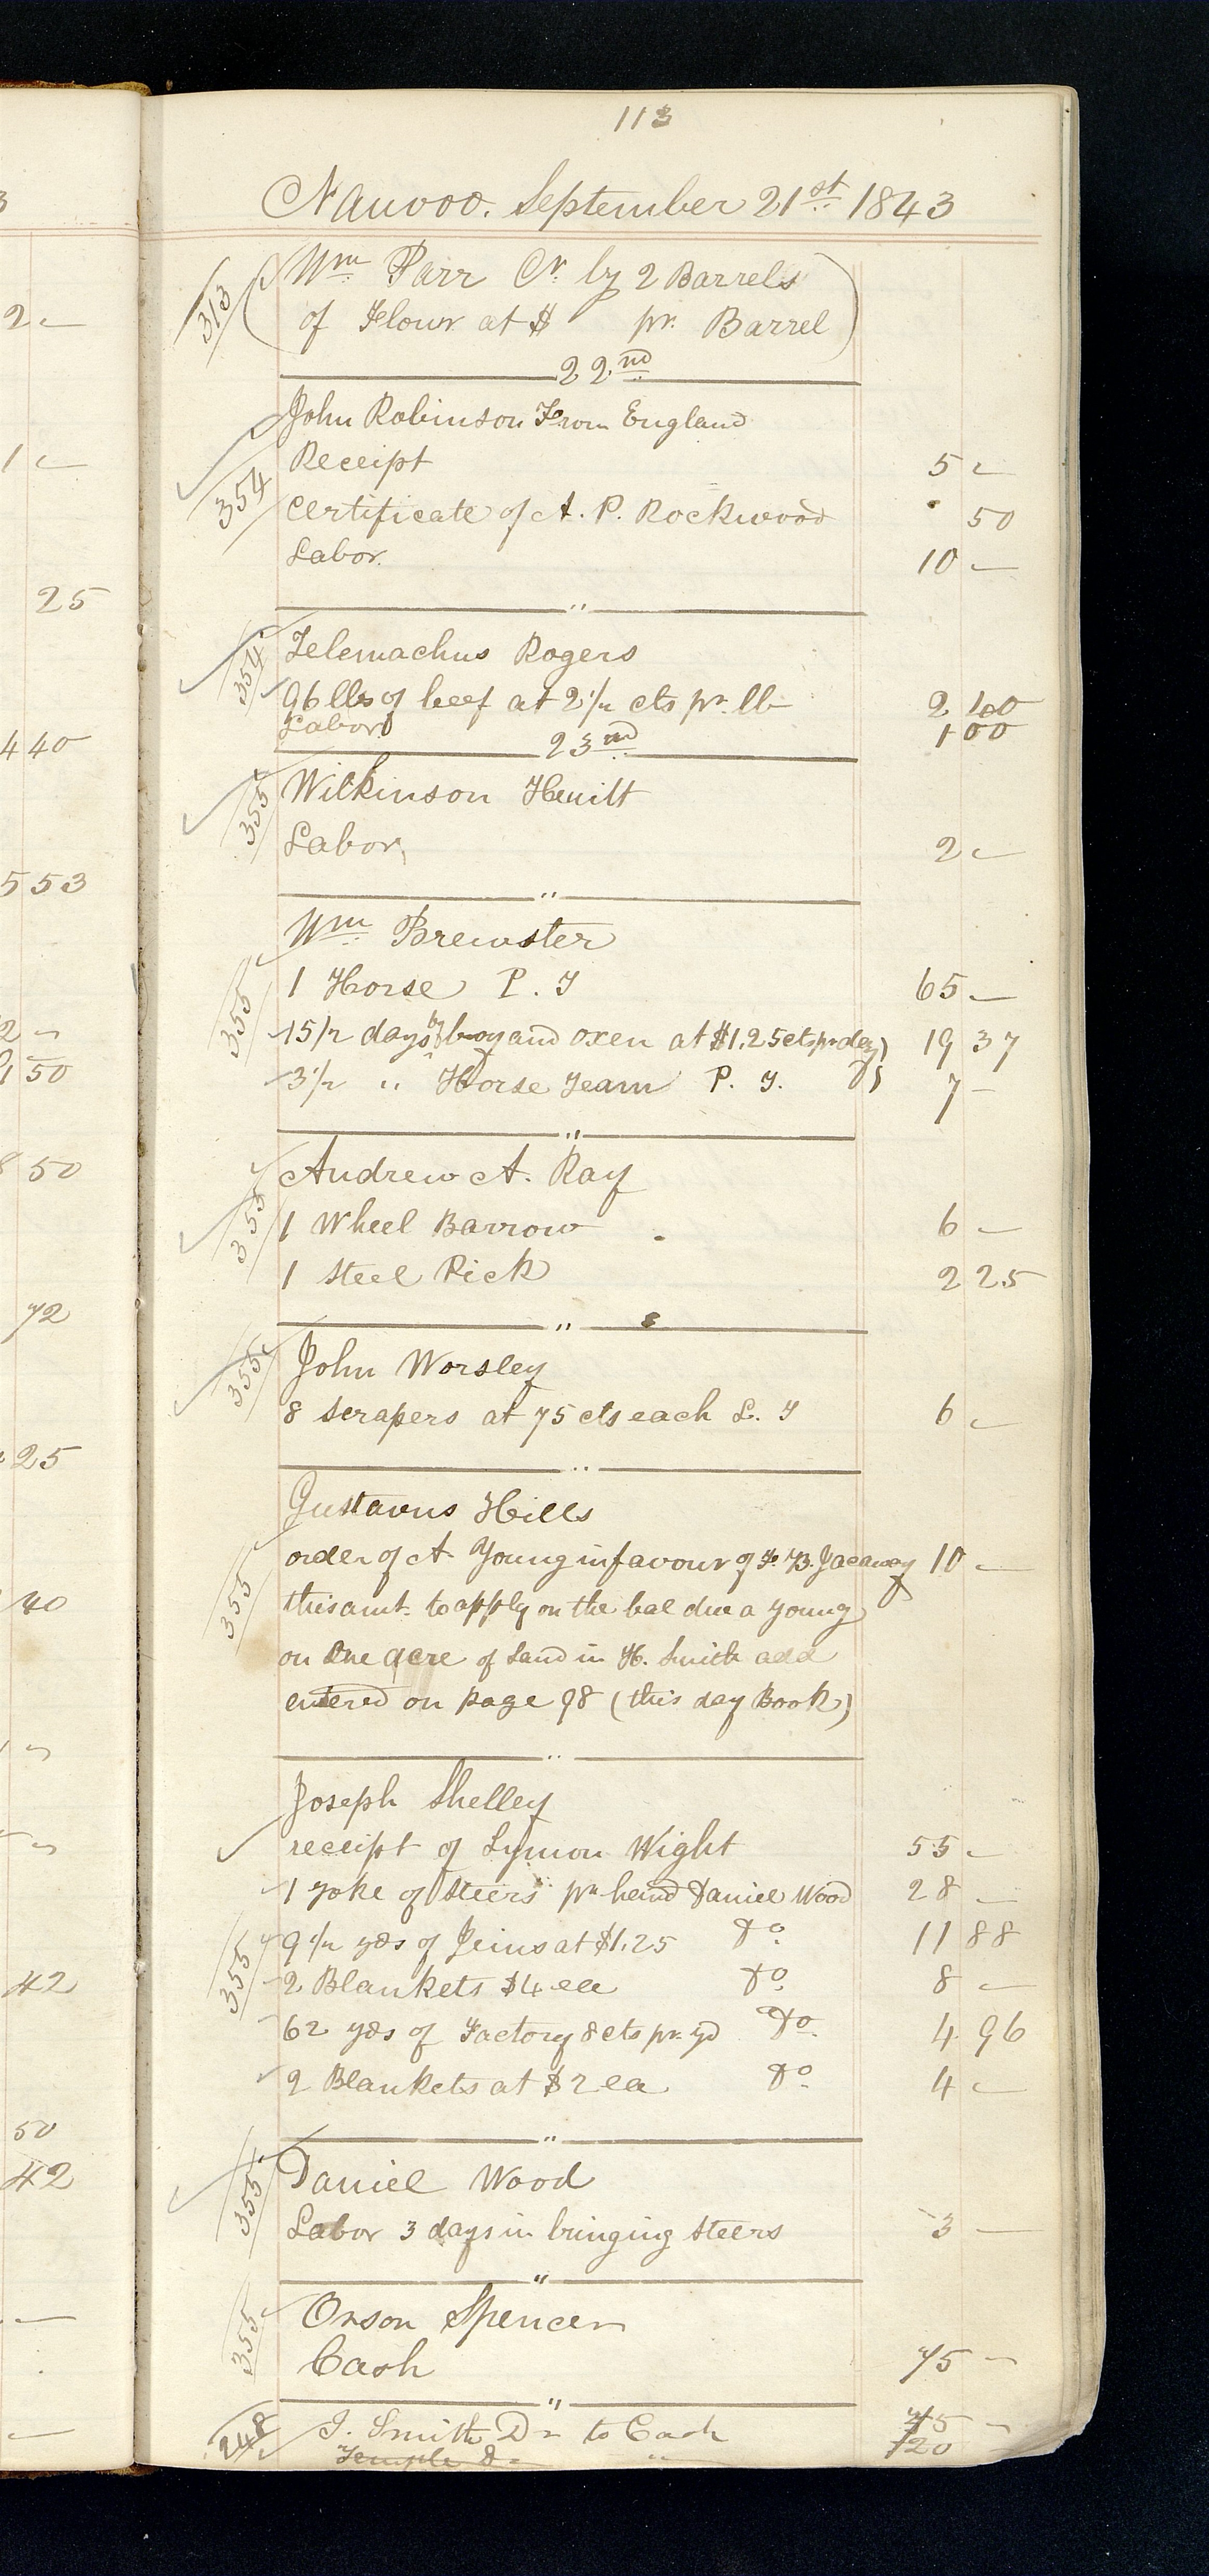 113
Nauvoo. September 21st 1843
313
Wm Parr Cr. by 2 Barrels
of Flour at $ pr. Barrel
22nd
John Robinson From England
Receipt 5 -
354
Certificate of A. P. Rockwood 50
Labor. 10 -
"
354
Telemachus Rogers
96 lbs of beef at 2 1/2 cts pr. lb 2 40
Labor 1 00
23nd
355
Wilkinson Hewitt
Labor 2 -
"
Wm Brewster
355
1 Horse P. T 65 -
15 1/2 days of boy and oxen at $1.25 cts pr day 19 37
3 1/2 " Horse Team P. T. 7 -
"
Andrew A. Ray
355
1 Wheel Barrow 6 -
1 Steel Pick 2 25
"
355
John Worsley
8 Scrapers at 75 cts each L. T 6 -
"
Gustavus Hills
355
order of A. Young in favour of 10 -
this amt. to apply on the bal due a young
on One acre of Land in H. Smith add
entered on page 98 (this day Book)
"
Joseph Shelley
receipt of Lymon Wight 55 -
1 yoke of Steers pr hand Daniel Wood 28 -
355
9 1/2 yds of Jeins at $1.25 Do 11 88
2 Blankets $4 ea Do 8 -
62 yds of Factory 8 cts pr. yd Do 4 96
2 Blankets at $2 ea Do 4 -
"
355
Daniel Wood
Labor 3 days in bringing Steers 3 -
"
355
Orson Spencer
Cash 75 -
"
248
J. Smith Dr to Cash 75 -
Temple Dr " 120
3
2 -
1 -
25
4 40
5 53
2 -
1 50
8 50
72
25
40
42
50
42